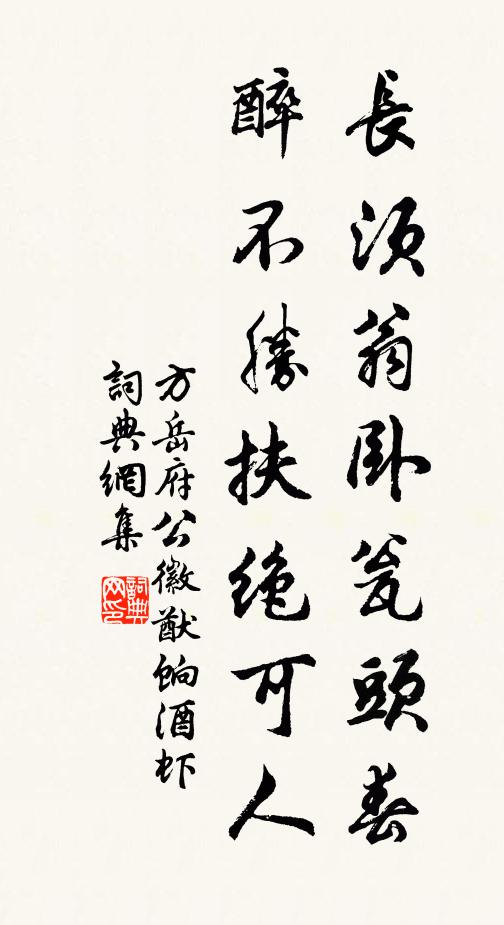 長須翁卧瓮頭春
醉不勝扶絶可人
方岳府公徽猷餉酒虾
詞典網集
詞典
网印